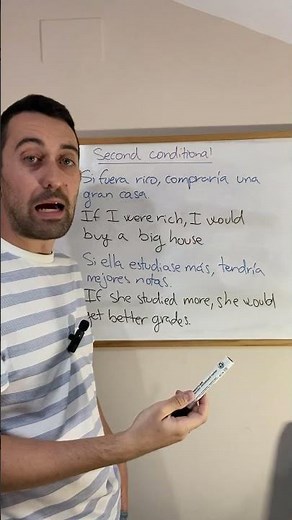 Second conditional
Si fuera rico, compraría una
gran casa
If I were rich, I would
buy a big house
Si ella estudiase más, tendría
mejores notas.
If she studied more, she would
get better grades.